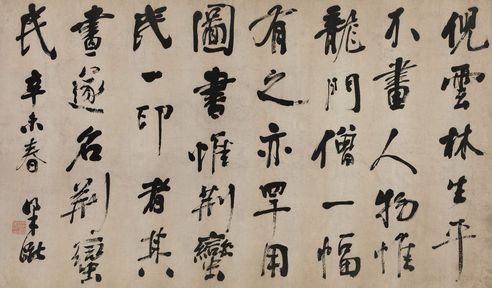 倪雲林生平
不畫人物惟
龍門僧一幅
有之亦罕用
圖書惟荆蠻
民一印者其
畫遂名荆蠻
民辛未春